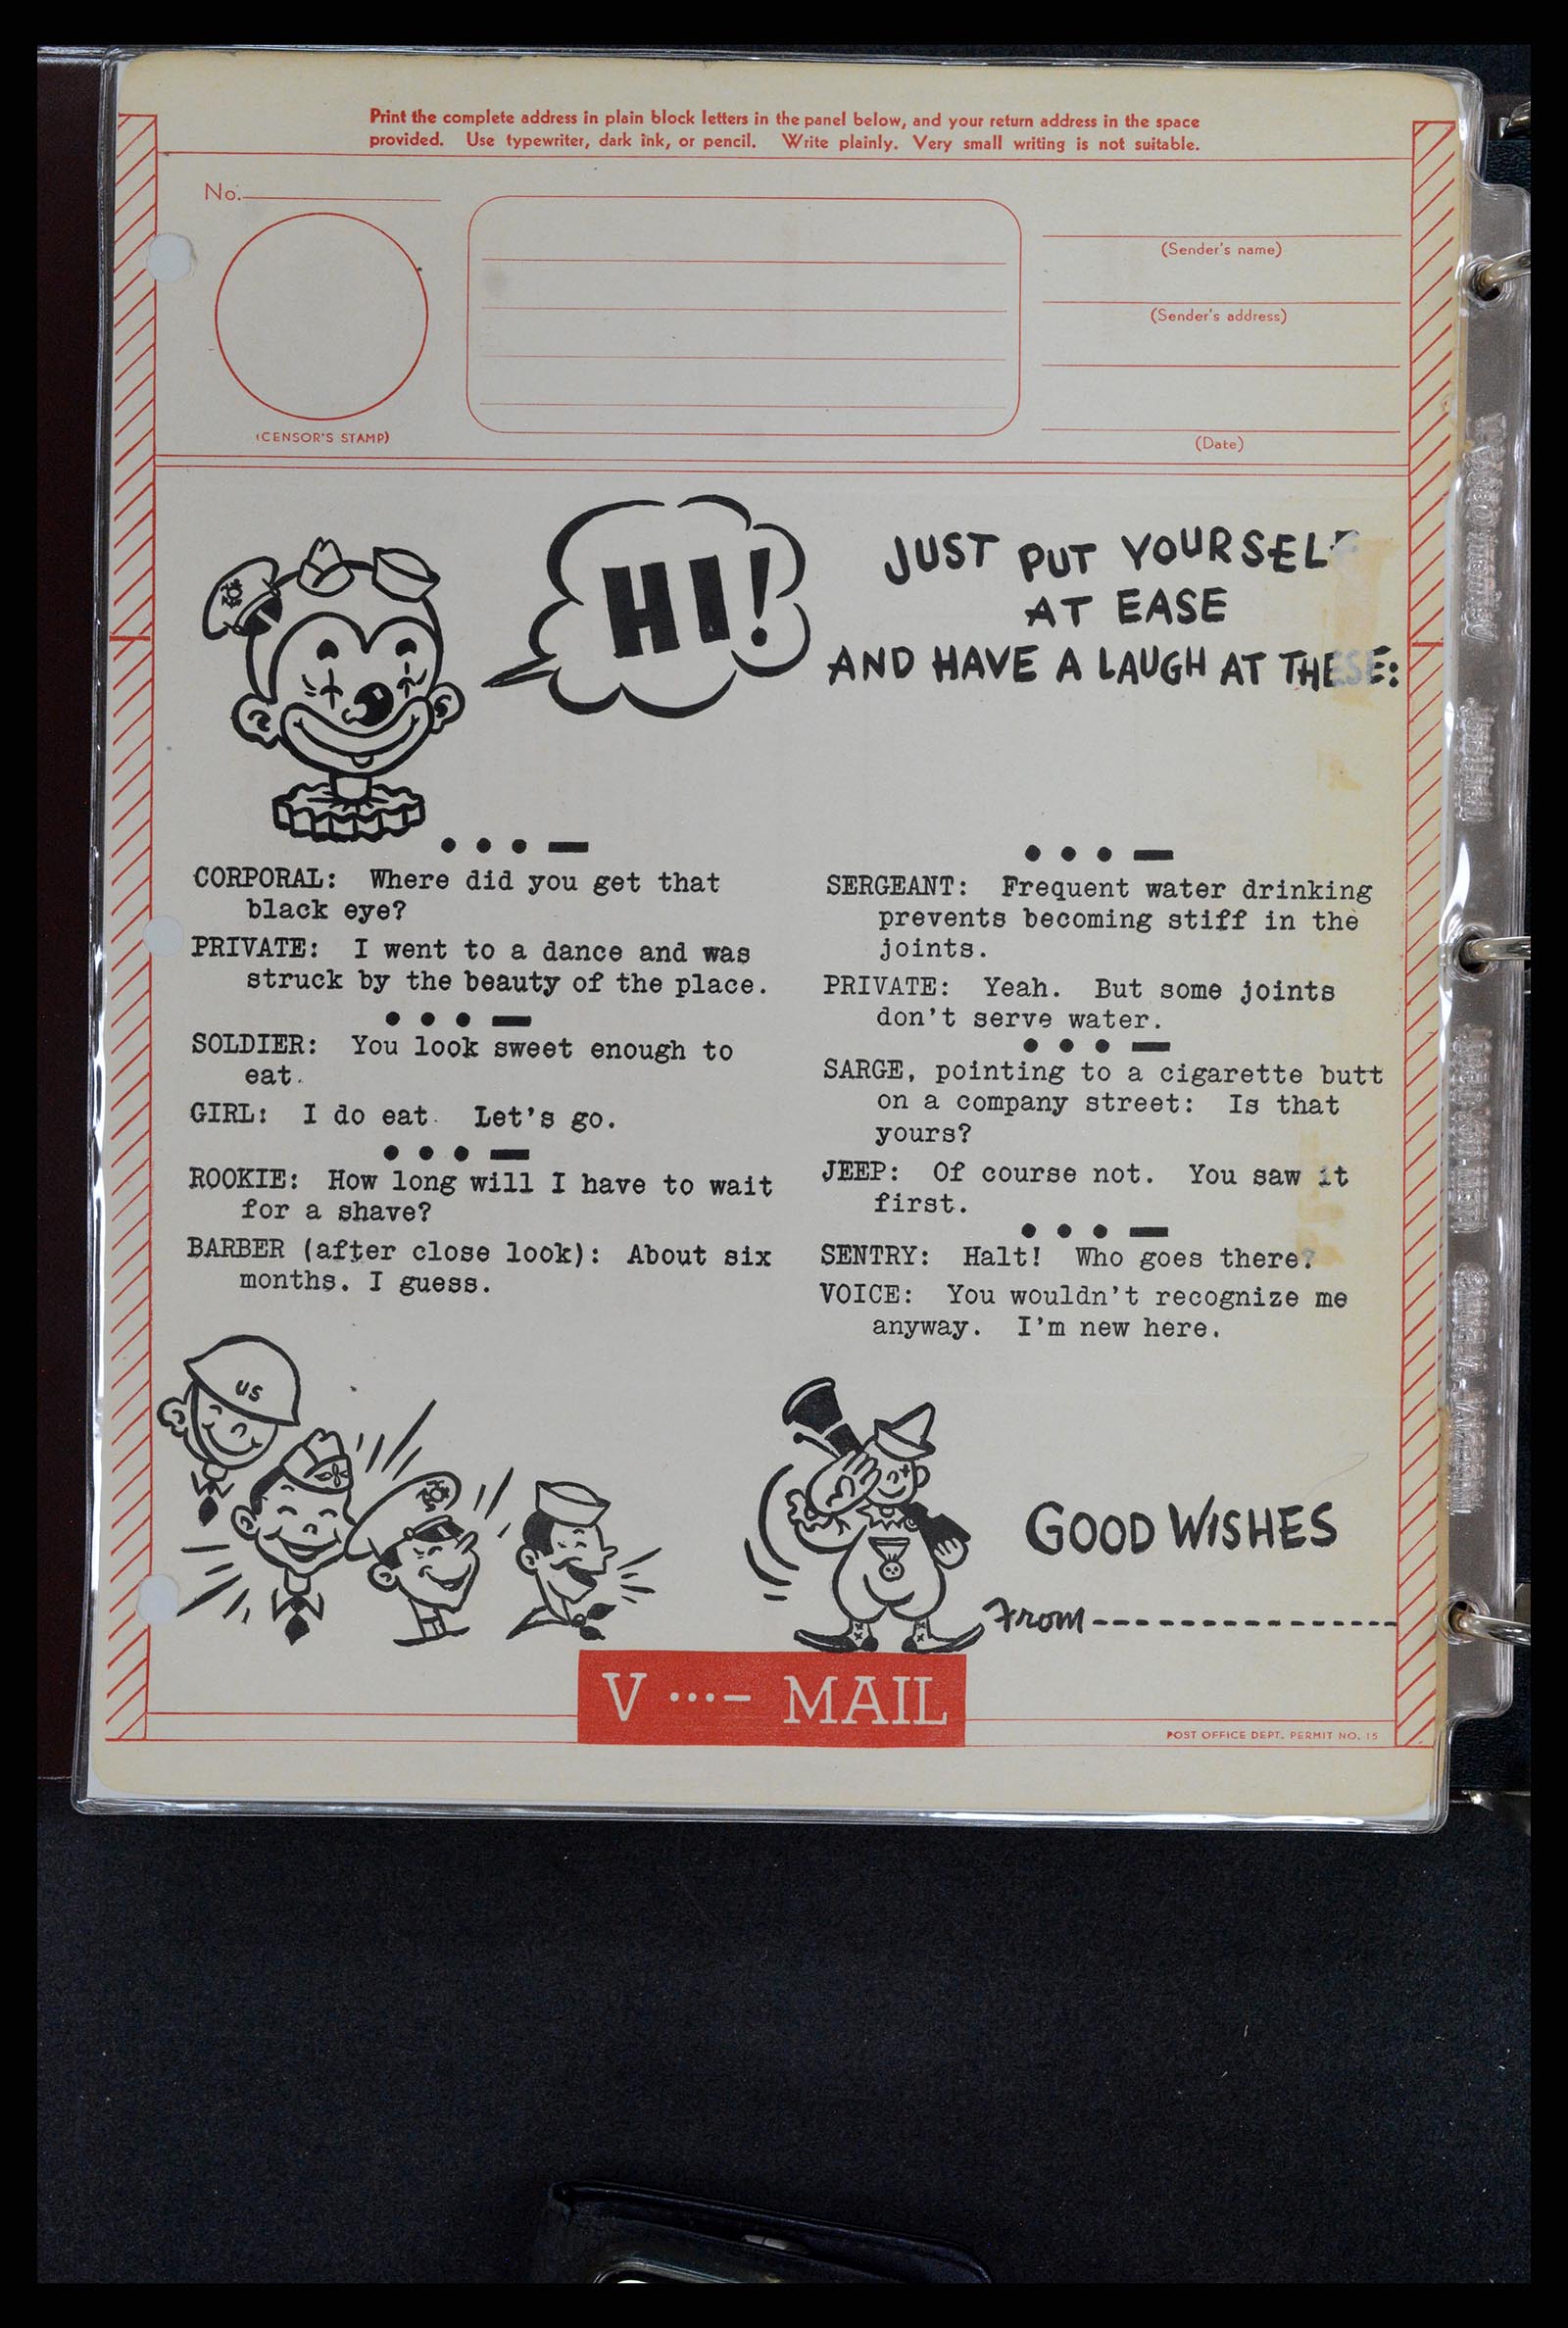 Print the complete address in plain block letters in the panel below, and your return address in the space
provided. Use typewriter, dark ink, or pencil. Write plainly. Very small writing is not suitable.
No.
(CENSOR'S STAMP)
(Sender's name)
(Sender's address)
(Date)
HI!
JUST PUT YOURSELF
AT EASE
AND HAVE A LAUGH AT THESE:
CORPORAL: Where did you get that
black eye?
PRIVATE: I went to a dance and was
struck by the beauty of the place.
SOLDIER: You look sweet enough to
eat.
GIRL: I do eat. Let's go.
ROOKIE: How long will I have to wait
for a shave?
BARBER (after close look): About six
months. I guess.
SERGEANT: Frequent water drinking
prevents becoming stiff in the
joints.
PRIVATE: Yeah. But some joints
don't serve water.
SARGE, pointing to a cigarette butt
on a company street: Is that
yours?
JEEP: Of course not. You saw it
first.
SENTRY: Halt! Who goes there?
VOICE: You wouldn't recognize me
anyway. I'm new here.
US
GOOD WISHES
From
V ...– MAIL
POST OFFICE DEPT. PERMIT NO. 15